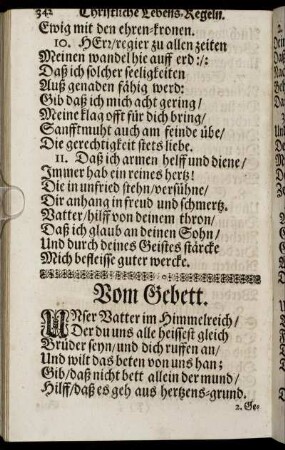 342 Christliche Lebens-Regeln.
Ewig mit den ehren-kronen.
10. HErr/regier zu allen zeiten
Meinen wandel hie auff erd :/:
Daß ich solcher seeligkeiten
Auß genaden fähig werd:
Gib daß ich mich acht gering/
Meine klag offt für dich bring/
Sanfftmuht auch am feinde übe/
Die gerechtigkeit stets liebe.
11. Daß ich armen helff und diene/
Immer hab ein reines hertz!
Die in unfried stehn/versühne/
Dir anhang in freud und schmertz.
Vatter/hilff von deinem thron/
Daß ich glaub an deinen Sohn/
Und durch deines Geistes stärcke
Mich befleisse guter wercke.
Vom Gebett.
UNser Vatter im Himmelreich/
Der du uns alle heissest gleich
Brüder seyn/und dich ruffen an/
Und wilt das beten von uns han;
Gib/daß nicht bett allein der mund/
Hilff/daß es geh aus hertzens-grund.
2. Ge-